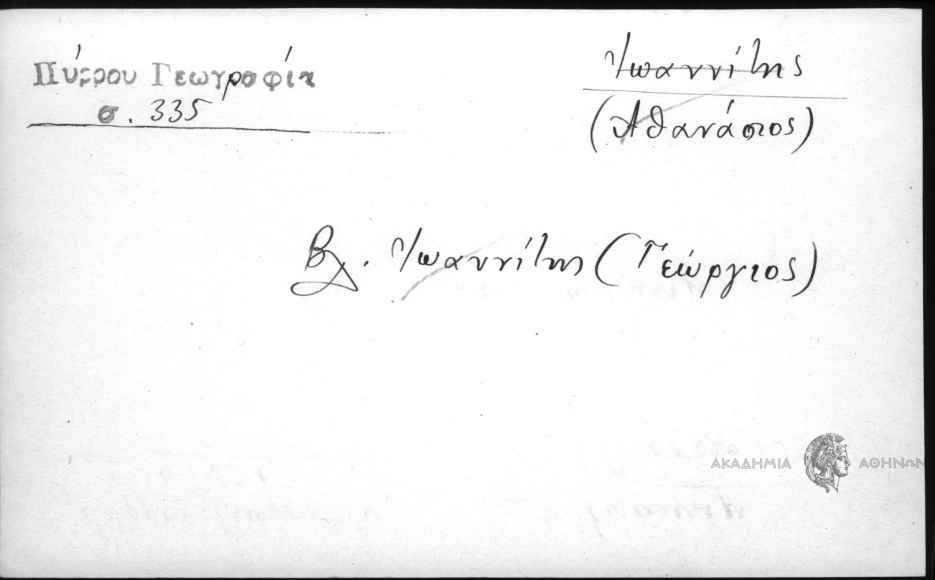 Πύρρου Γεωγροφία
σ. 335
Ἰωαννίτης
(Ἀθανάσιος)
Βλ. Ἰωαννίτης (Γεώργιος)
ΑΚΑΔΗΜΙΑ ΑΘΗΝΩΝ